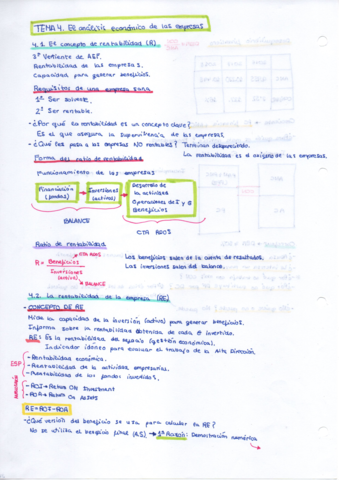 TEMA 4. El análisis económico de las empresas
4.1. El concepto de rentabilidad (R)
3ª Vertiente de AEF.
Rentabilidad de las empresas.
Capacidad para generar beneficios.
Requisitos de una empresa sana
1º Ser solvente.
2º Ser rentable.
-¿Por qué la rentabilidad es un concepto clave?
Es el que asegura la supervivencia de las empresas.
-¿Qué les pasa a las empresas NO rentables? Terminan desapareciendo.
La rentabilidad es el oxígeno de las empresas.
Forma del ratio de rentabilidad
Funcionamiento de las empresas
Financiación (fondos)
Inversiones (activo)
Desarrollo de la actividad
Operaciones de I y G
Beneficios
BALANCE
CTA RDOS
Ratio de rentabilidad
CTA RDOS
R = Beneficios / Inversiones (activo)
BALANCE
Los beneficios salen de la cuenta de resultados.
Las inversiones salen del balance.
4.2. La rentabilidad de la empresa (RE)
-CONCEPTO DE RE
Mide la capacidad de la inversión (activo) para generar beneficios.
Informa sobre la rentabilidad obtenida de cada € invertido.
RE: Es la rentabilidad del negocio (gestión económica).
Indicador idóneo para evaluar el trabajo de la Alta Dirección.
ESP
-Rentabilidad económica.
-Rentabilidad de la actividad empresarial.
-Rentabilidad de los fondos invertidos.
-ROI → Return ON Investment
-ROA → Return On Assets
RE=ROI=ROA
-¿Qué versión del beneficio se usa para calcular la RE?
No se utiliza el beneficio final → 1ª Razón: Demostración numérica